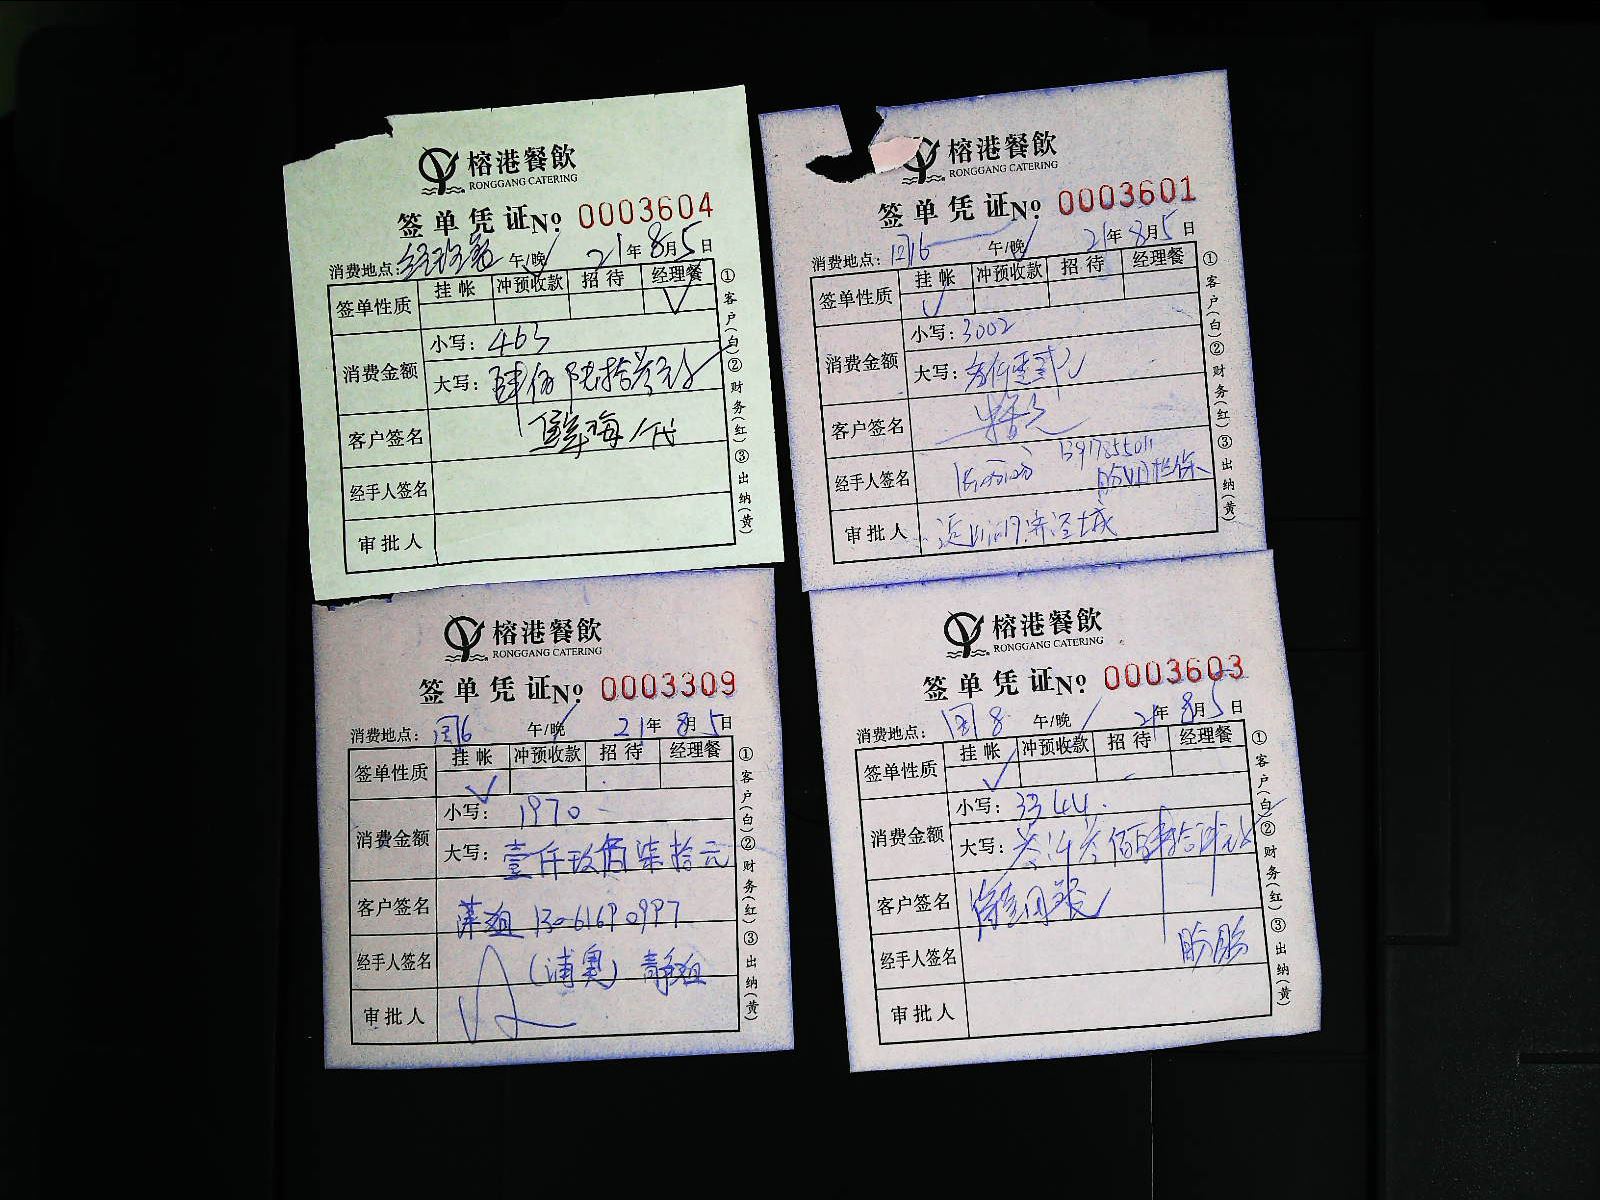 榕港餐飲
RONGGANG CATERING
签单凭证 No. 0003604
消费地点: 午/晚 21年8月5日
签单性质 挂帐 冲预收款 招待 经理餐
✓
消费金额 小写: 463
大写: 肆佰陆拾叁元
客户签名 海/代
经手人签名
审批人
①客户(白)②财务(红)③出纳(黄)
榕港餐飲
RONGGANG CATERING
签单凭证 No. 0003601
消费地点: 午/晚 21年8月5日
签单性质 挂帐 冲预收款 招待 经理餐
✓
消费金额 小写: 3002
大写: 叁仟零贰元
客户签名
经手人签名
审批人
①客户(白)②财务(红)③出纳(黄)
榕港餐飲
RONGGANG CATERING
签单凭证 No. 0003309
消费地点: 午/晚 21年8月5日
签单性质 挂帐 冲预收款 招待 经理餐
✓
消费金额 小写: 1970
大写: 壹仟玖佰柒拾元
客户签名
经手人签名 (浦奥)
审批人
①客户(白)②财务(红)③出纳(黄)
榕港餐飲
RONGGANG CATERING
签单凭证 No. 0003603
消费地点: 午/晚 21年8月5日
签单性质 挂帐 冲预收款 招待 经理餐
✓
消费金额 小写: 3344.
大写: 叁仟叁佰肆拾肆元
客户签名
经手人签名
审批人
①客户(白)②财务(红)③出纳(黄)